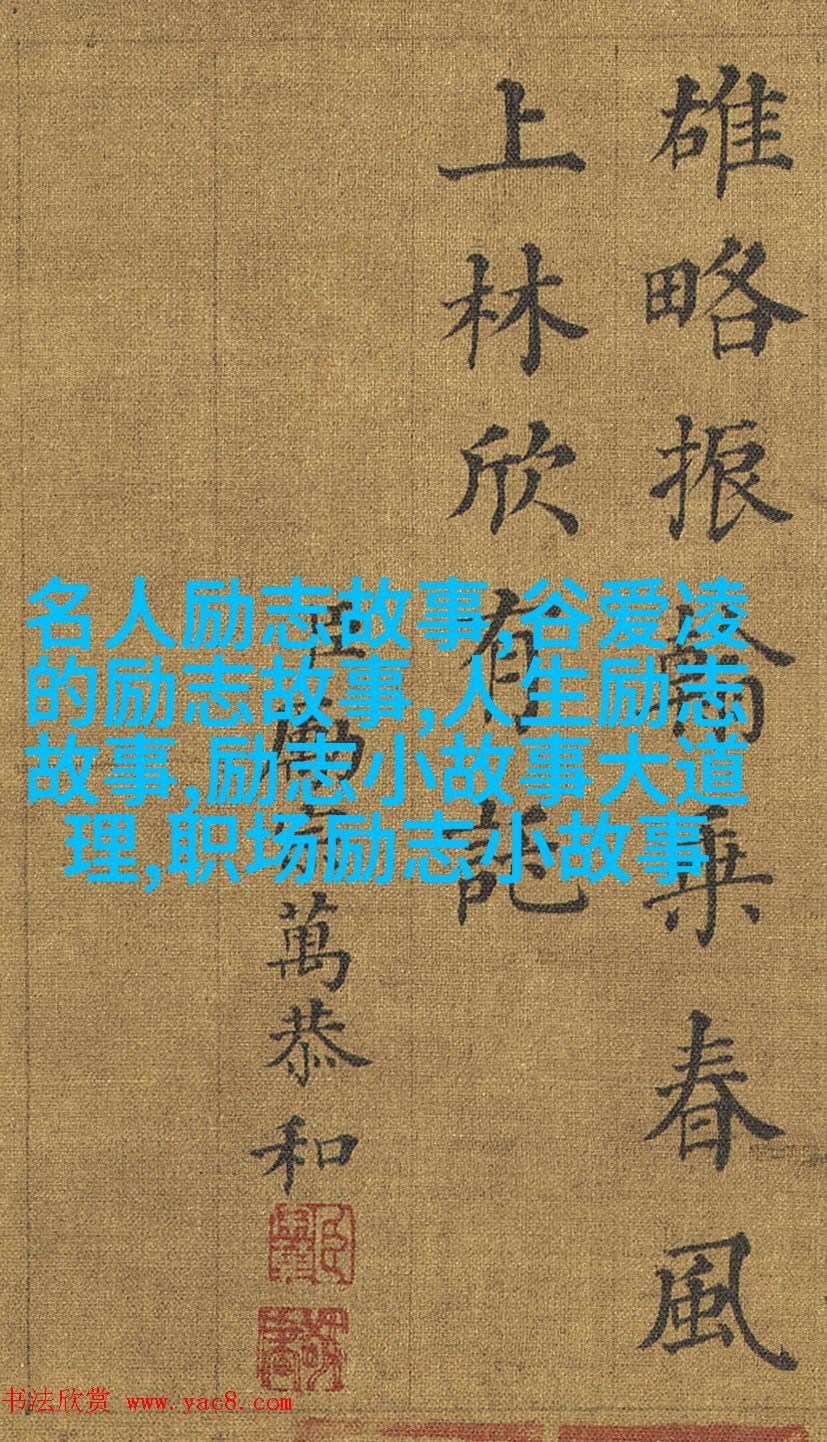 雄略振乘春風
上林欣有託
臣勵宗萬恭和
名人励志故事,谷爱凌
的励志故事,人生励志
故事,励志小故事大道
理,职场励志小故事
书法欣赏 www.yac8.com